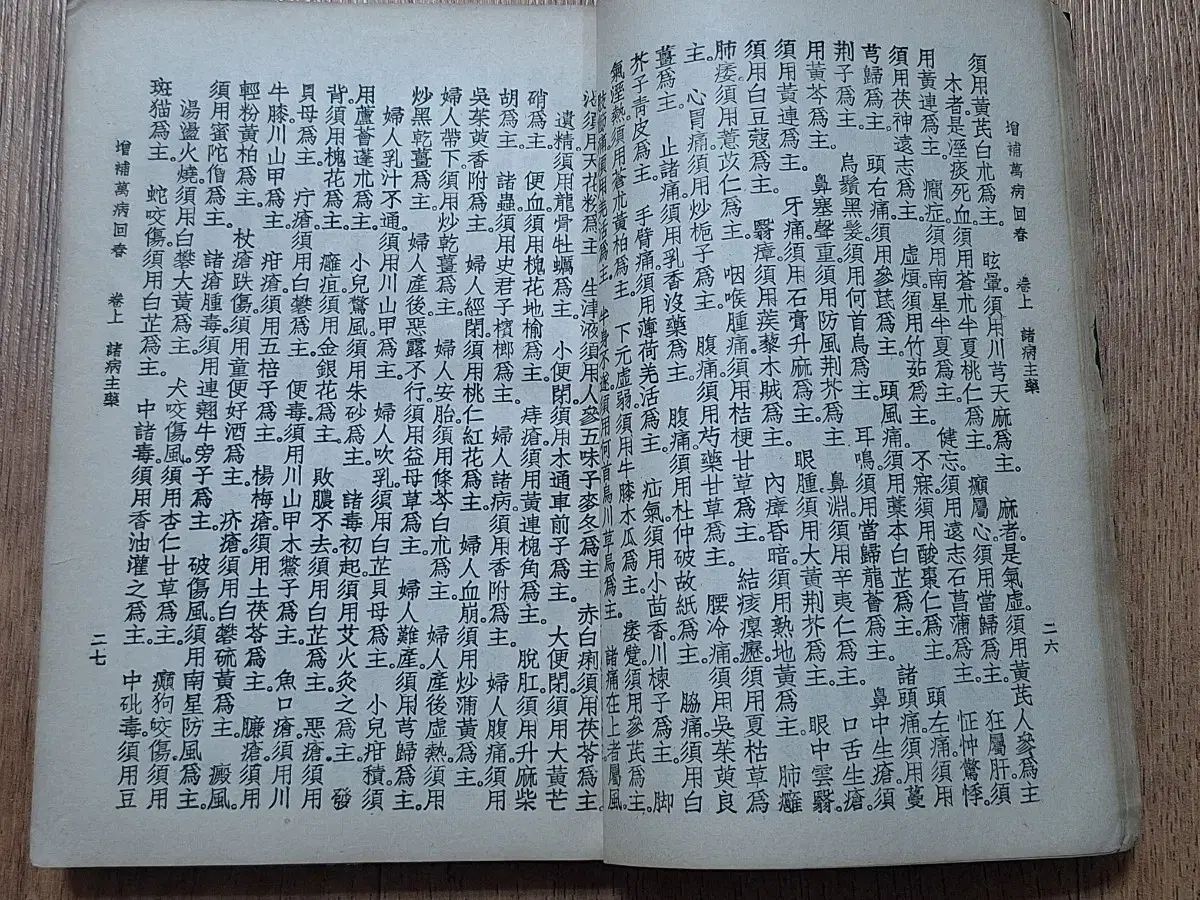 增補萬病回春 卷上 諸病主藥 二六
須用黃芪白朮爲主。 眩暈須用川芎天麻爲主。 麻者是氣虛須用黃芪人參爲主
木者是溼痰死血須用蒼朮半夏桃仁爲主。 癲屬心須用當歸爲主。 狂屬肝須
用黃連爲主。 癇症須用南星半夏爲主。 健忘須用遠志石菖蒲爲主。 怔忡驚悸
須用茯神遠志爲主。 虛煩須用竹茹爲主。 不寐須用酸棗仁爲主。 頭左痛須用
芎歸爲主。 頭右痛須用參芪爲主。 頭風痛須用藁本白芷爲主。 諸頭痛須用蔓
荆子爲主。 烏鬚黑髮須用何首烏爲主。 耳鳴須用當歸龍薈爲主。 鼻中生瘡須
用黃芩爲主。 鼻塞聲重須用防風荆芥爲主。 鼻淵須用辛夷仁爲主。 口舌生瘡。
須用黃連爲主。 牙痛須用石膏升麻爲主。 眼腫須用大黃荆芥爲主。 眼中雲翳。
須用白豆蔻爲主。 翳瘴須用蒺藜木賊爲主。 內瘴昏暗須用熟地黃爲主。 肺癰
肺痿須用薏苡仁爲主。 咽喉腫痛須用桔梗甘草爲主。 結痰瘰癧須用夏枯草爲
主。 心胃痛須用炒梔子爲主。 腹痛須用芍藥甘草爲主。 腰冷痛須用吳茱萸良
薑爲主。 止諸痛須用乳香沒藥爲主。 腹痛須用杜仲破故紙爲主。 脇痛須用白
芥子青皮爲主。 手臂痛須用薄荷羌活爲主。 疝氣須用小茴香川楝子爲主。 脚
氣溼熱須用蒼朮黃柏爲主。 下元虛弱須用牛膝木瓜爲主。 痿躄須用參芪爲主。
痛須用羌活爲主。 半身不遂須用何首烏川草烏爲主。 諸痛在上者屬風
須用天花粉爲主。 生津液須用人參五味子麥冬爲主。 赤白痢須用茯苓爲主
遺精須用龍骨牡蠣爲主。 小便閉須用木通車前子爲主。 大便閉須用大黃芒
硝爲主。 便血須用槐花地榆爲主。 痔瘡須用黃連槐角爲主。 脫肛須用升麻柴
胡爲主。 諸蟲須用史君子檳榔爲主。 婦人諸病須用香附爲主。 婦人腹痛須用
吳茱萸香附爲主。 婦人經閉須用桃仁紅花爲主。 婦人血崩須用炒蒲黃爲主。
婦人帶下。須用炒乾薑爲主。 婦人安胎須用條芩白朮爲主。 婦人產後虛熱。須用
炒黑乾薑爲主。 婦人產後惡露不行須用益母草爲主。 婦人難產須用芎歸爲主。
婦人乳汁不通須用川山甲爲主。 婦人吹乳須用白芷貝母爲主。 小兒疳積須
用蘆薈蓬朮爲主。 小兒驚風須用朱砂爲主。 諸毒初起須用艾火灸之爲主。 發
背須用槐花爲主。 癰疽須用金銀花爲主。 敗膿不去須用白芷爲主。 惡瘡須用
貝母爲主。 疔瘡須用白礬爲主。 便毒須用川山甲木鱉子爲主。 魚口瘡須用川
牛膝川山甲爲主。 疳瘡須用五棓子爲主。 楊梅瘡須用土茯苓爲主。 臁瘡須用
輕粉黃柏爲主。 杖瘡跌傷須用童便好酒爲主。 疥瘡須用白礬硫黃爲主。 癜風
須用蜜陀僧爲主。 諸瘡腫毒須用連翹牛旁子爲主。 破傷風須用南星防風爲主。
湯盪火燒須用白礬大黃爲主。 犬咬傷風須用杏仁甘草爲主。 癲狗咬傷須用
斑猫爲主。 蛇咬傷須用白芷爲主。 中諸毒須用香油灌之爲主。 中砒毒須用豆
增補萬病回春 卷上 諸病主藥 二七